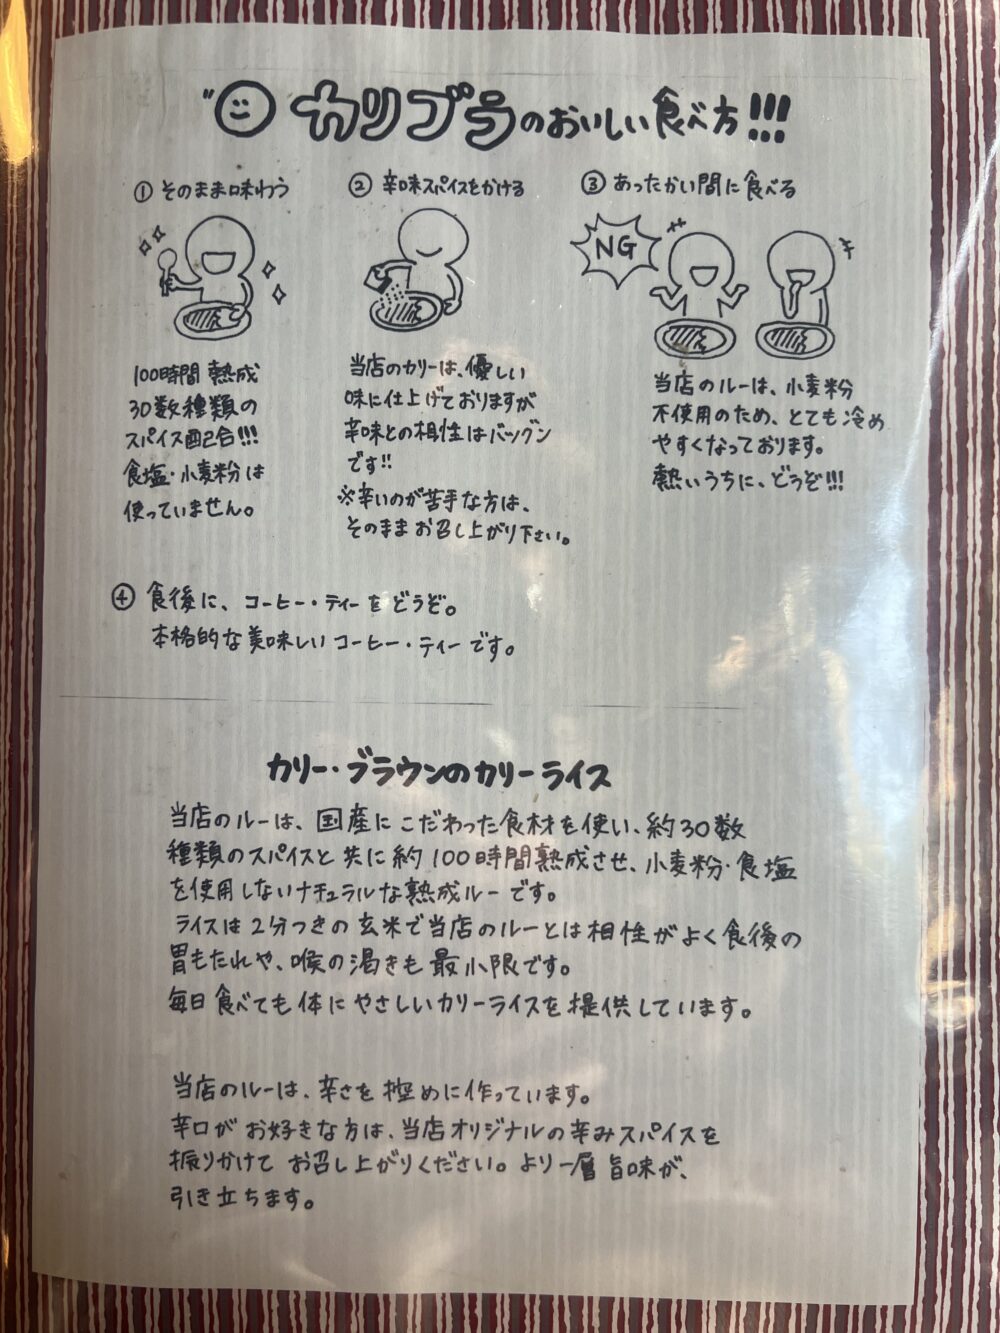 カリブラのおいしい食べ方!!!
① そのまま味わう
100時間 熟成
30数種類の
スパイス配合!!!
食塩・小麦粉は
使っていません。
② 辛味スパイスをかける
当店のカリーは、優しい
味に仕上げておりますが
辛味との相性はバツグン
です!!
※辛いのが苦手な方は、
そのままお召し上がり下さい。
③ あったかい間に食べる
NG
当店のルーは、小麦粉
不使用のため、とても冷め
やすくなっております。
熱いうちに、どうぞ!!!
④ 食後に、コーヒー・ティーをどうぞ。
本格的な美味しいコーヒー・ティーです。
カリー・ブラウンのカリーライス
当店のルーは、国産にこだわった食材を使い、約30数
種類のスパイスと共に約100時間熟成させ、小麦粉・食塩
を使用しないナチュラルな熟成ルーです。
ライスは2分つきの玄米で当店のルーとは相性がよく食後の
胃もたれや、喉の渇きも最小限です。
毎日食べても体にやさしいカリーライスを提供しています。
当店のルーは、辛さを控めに作っています。
辛口がお好きな方は、当店オリジナルの辛みスパイスを
振りかけてお召し上がりください。より一層旨味が、
引き立ちます。